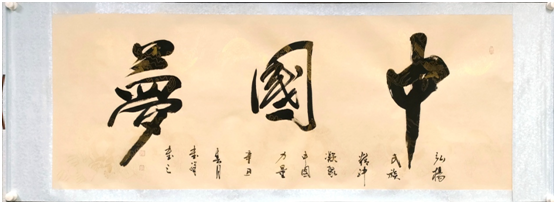 中國夢
弘揚
民族
精神
凝聚
中國
力量
辛丑
春月